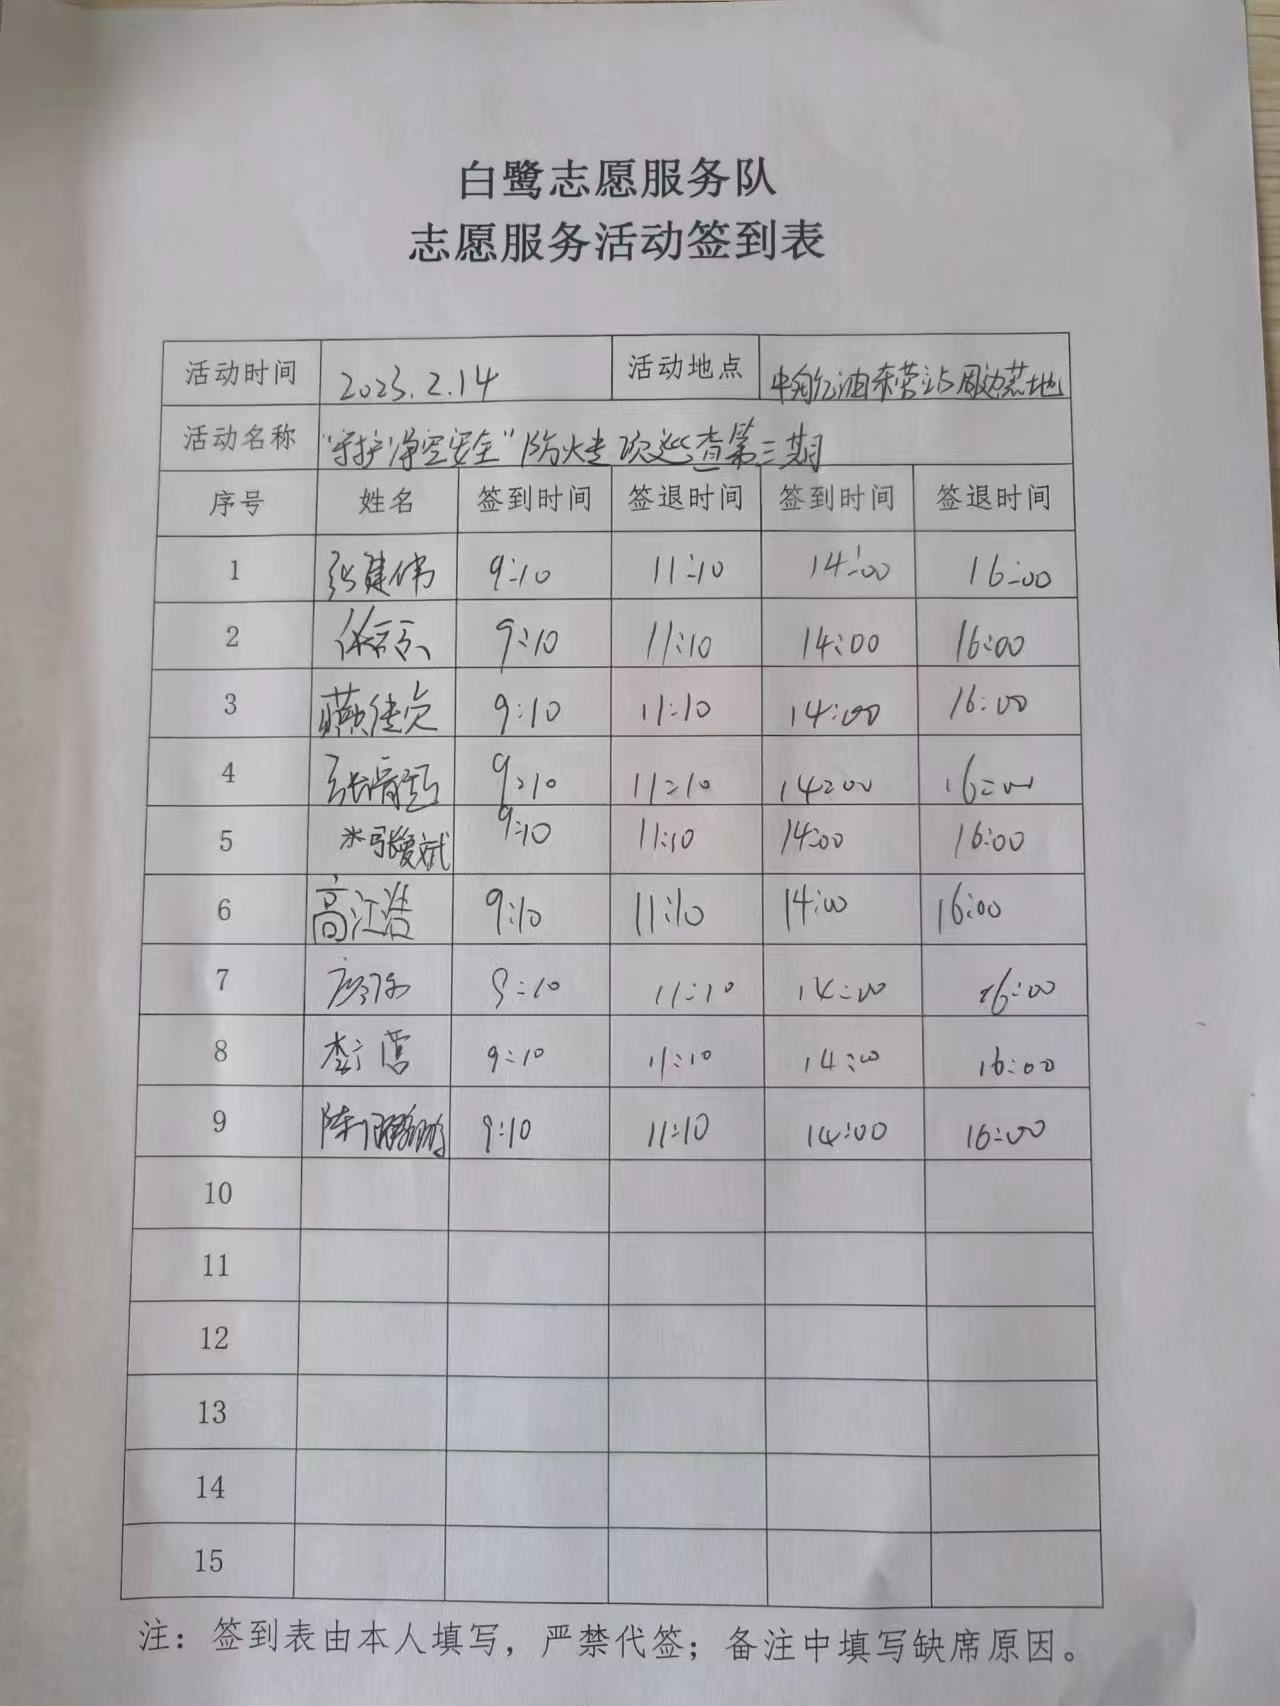 白鹭志愿服务队
志愿服务活动签到表
活动时间 2023.2.14 活动地点 中航油东营站周边荒地
活动名称 "守护净空安全"防火专项巡查第三期
序号 姓名 签到时间 签退时间 签到时间 签退时间
1 张建伟 9:10 11:10 14:00 16:00
2 9:10 11:10 14:00 16:00
3 9:10 11:10 14:00 16:00
4 9:10 11:10 14:00 16:00
5 9:10 11:10 14:00 16:00
6 高江浩 9:10 11:10 14:00 16:00
7 9:10 11:10 14:00 16:00
8 9:10 11:10 14:00 16:00
9 9:10 11:10 14:00 16:00
10
11
12
13
14
15
注：签到表由本人填写，严禁代签；备注中填写缺席原因。